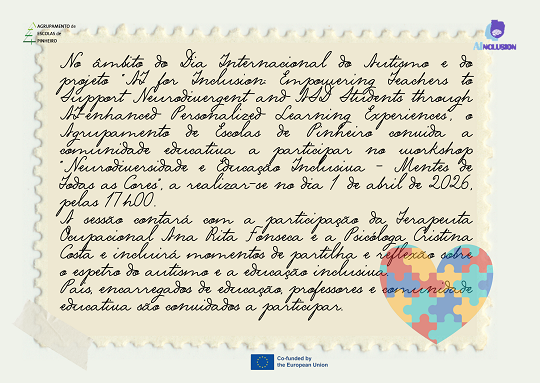 AGRUPAMENTO de
ESCOLAS de
PINHEIRO
AINCLUSION
No âmbito do Dia Internacional do Autismo e do
projeto "AI for Inclusion: Empowering Teachers to
Support Neurodivergent and ASD Students through
AI-enhanced Personalized Learning Experiences", o
Agrupamento de Escolas de Pinheiro convida a
comunidade educativa a participar no workshop
"Neurodiversidade e Educação Inclusiva - Mentes de
Todas as Cores", a realizar-se no dia 1 de abril de 2026,
pelas 17h00.
A sessão contará com a participação da Terapeuta
Ocupacional Ana Rita Fonseca e a Psicóloga Cristina
Costa e incluirá momentos de partilha e reflexão sobre
o espetro do autismo e a educação inclusiva.
Pais, encarregados de educação, professores e comunidade
educativa são convidados a participar.
Co-funded by
the European Union